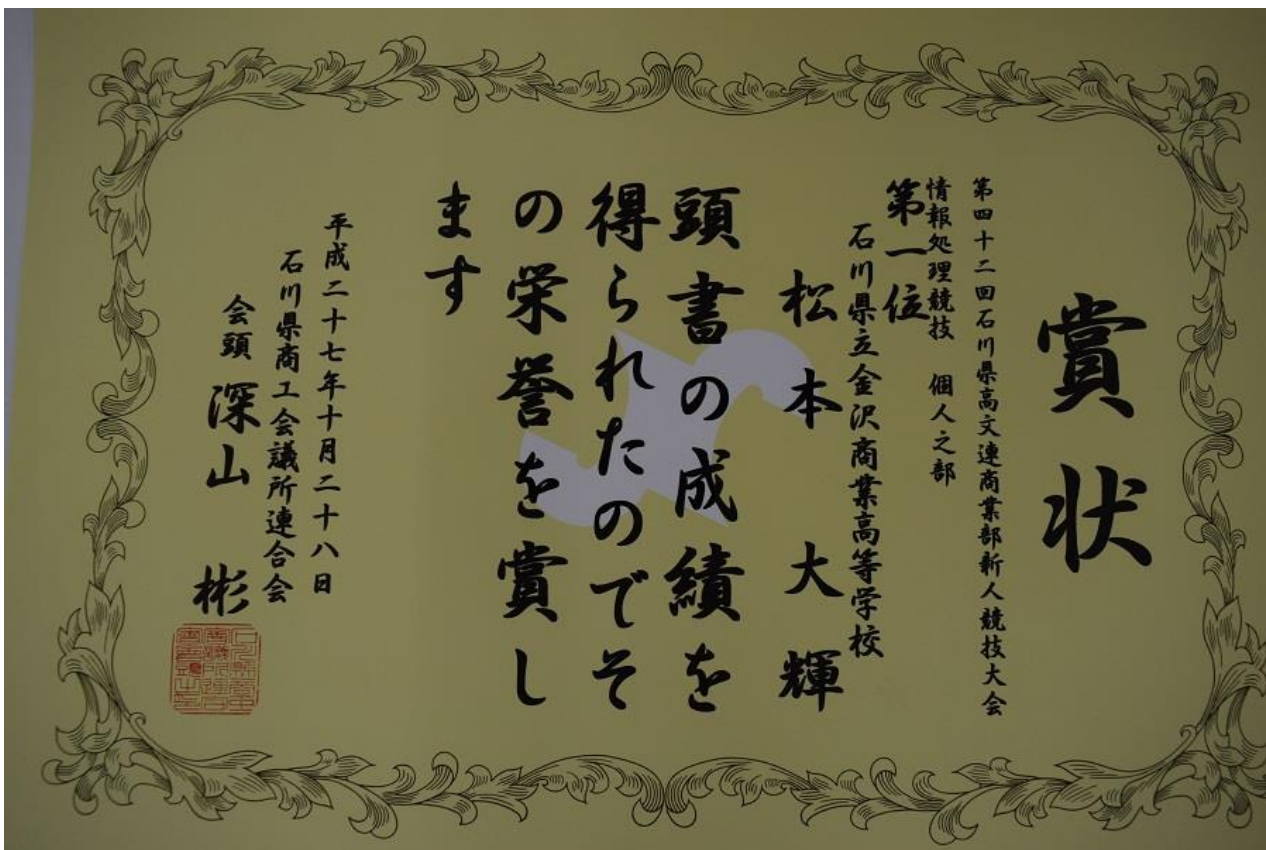 賞状
第四十二回石川県高文連商業部新人競技大会
情報処理競技 個人之部
第一位
石川県立金沢商業高等学校
松本大輝
頭書の成績を
得られたのでそ
の栄誉を賞し
ます
平成二十七年十月二十八日
石川県商工会議所連合会
会頭 深山 彬